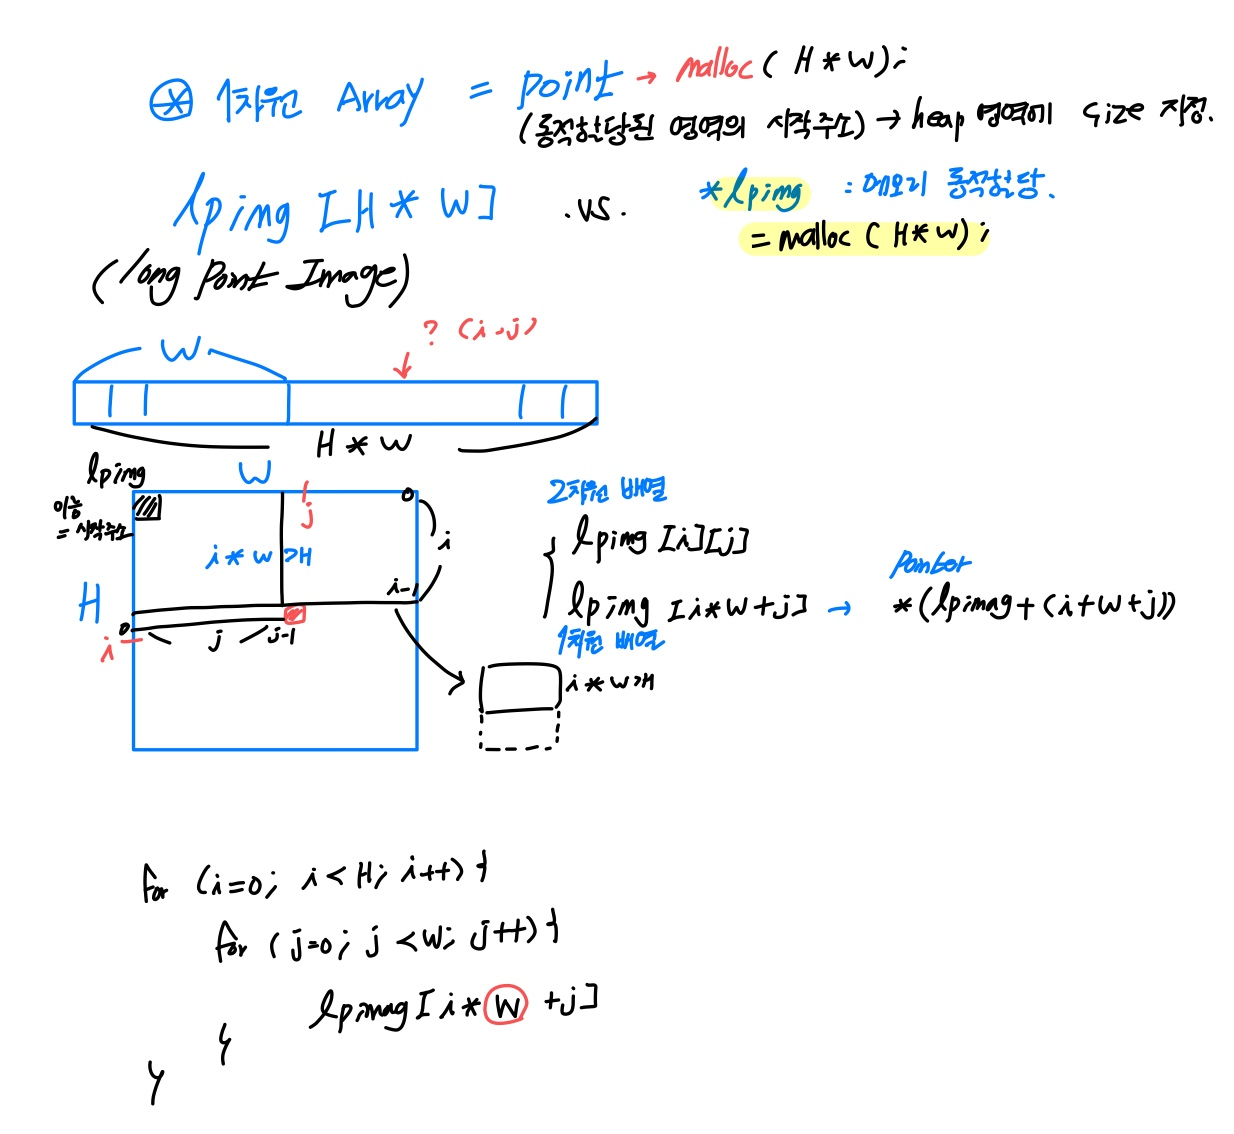 ⊛ 1차원 Array = point → malloc ( H * W );
(동적할당된 영역의 시작주소) → heap 영역에 size 지정.
lpimg [H * W] .vs. *lpimg : 메모리 동적할당.
= malloc ( H * W );
(long Point Image)
? (i, j)
W
H * W
lpimg
W
이놈
= 시작주소
j
0
i
i * w 개
i-1
H
0
i
j
j-1
2차원 배열
lpimg [i][j]
lpimg [i*W+j] →
1차원 배열
Pointer
*(lpimag+(i+W+j))
i * w 개
for (i=0; i < H; i++) {
for (j=0; j < W; j++) {
lpimag [ i * W +j]
}
}